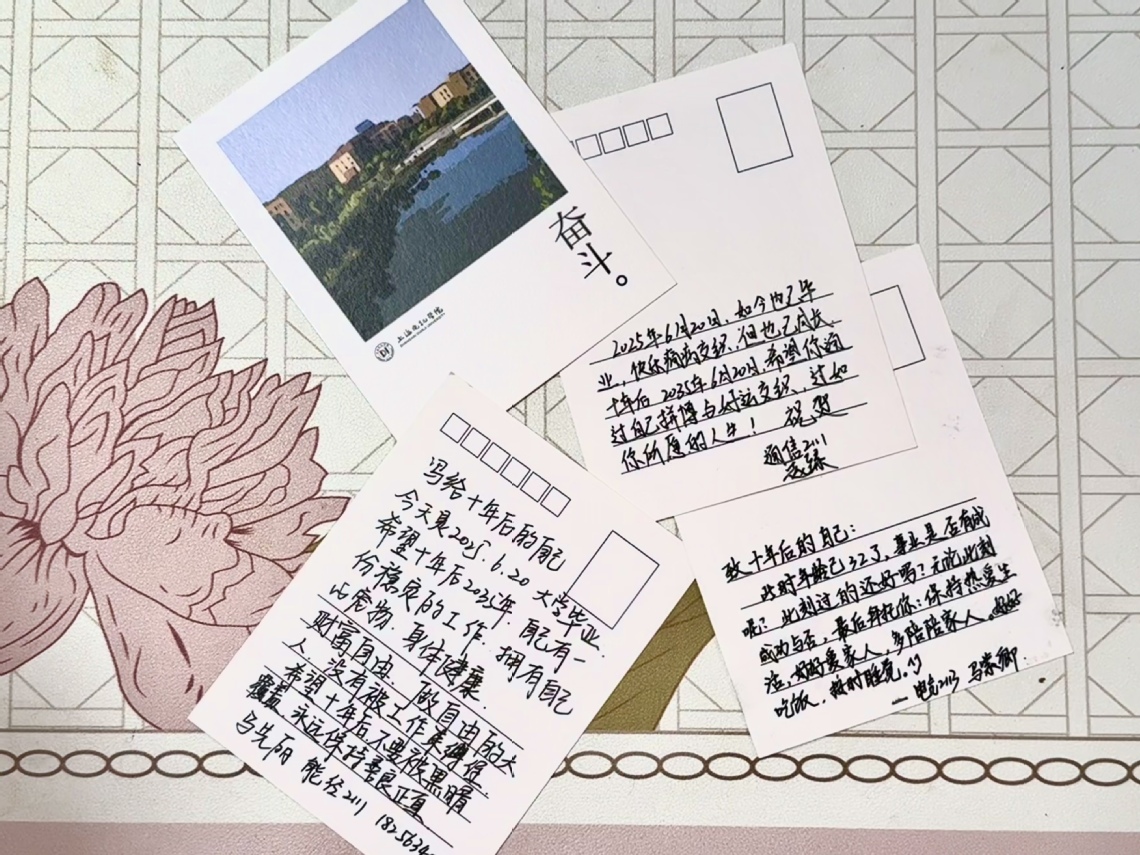 奋斗。
上海电机学院
2025年6月20日，如今也已毕
业，快乐痛病交织，但也已成长.
十年后 2035年6月20日，希望你通
过自己拼搏与好运交织，过如
你所愿的人生！ 祝想
通信2111
写给十年后的自己
今天是2025.6.20 大学毕业.
希望十年后2035年，自己有一
份稳定的工作，拥有自己
的宠物，身体健康.
财富自由. 做自由的大
人，没有被工作
希望十年后不要被黑暗
永远保持善良正直
能经2111 1825634
致十年后的自己：
此时年龄已32了，事业是否有成
呢？此刻过的还好吗？无论此刻
成功与否，最后拜托你：保持热爱生
活，好好爱家人，多陪陪家人。好好
吃饭，按时睡觉。